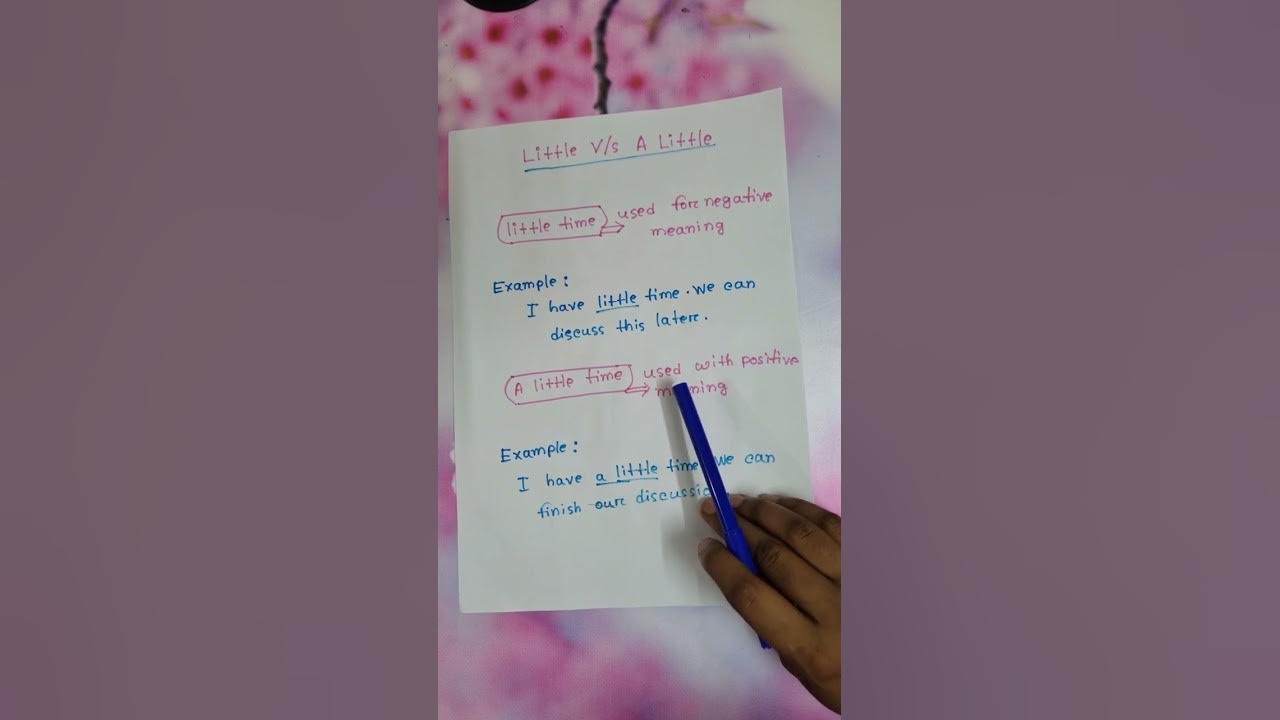 Little V/s A Little
little time ⇒ used for negative
meaning
Example:
I have little time. We can
discuss this later.
A little time ⇒ used with positive
meaning
Example:
I have a little time we can
finish our